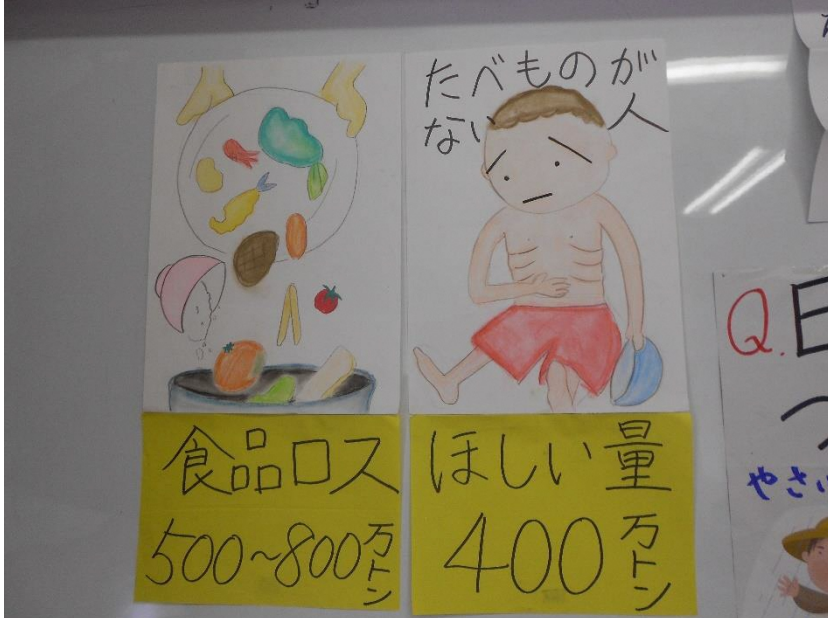 たべものが
ない人
食品ロス
500～800万トン
ほしい量
400万トン
Q.
やさい